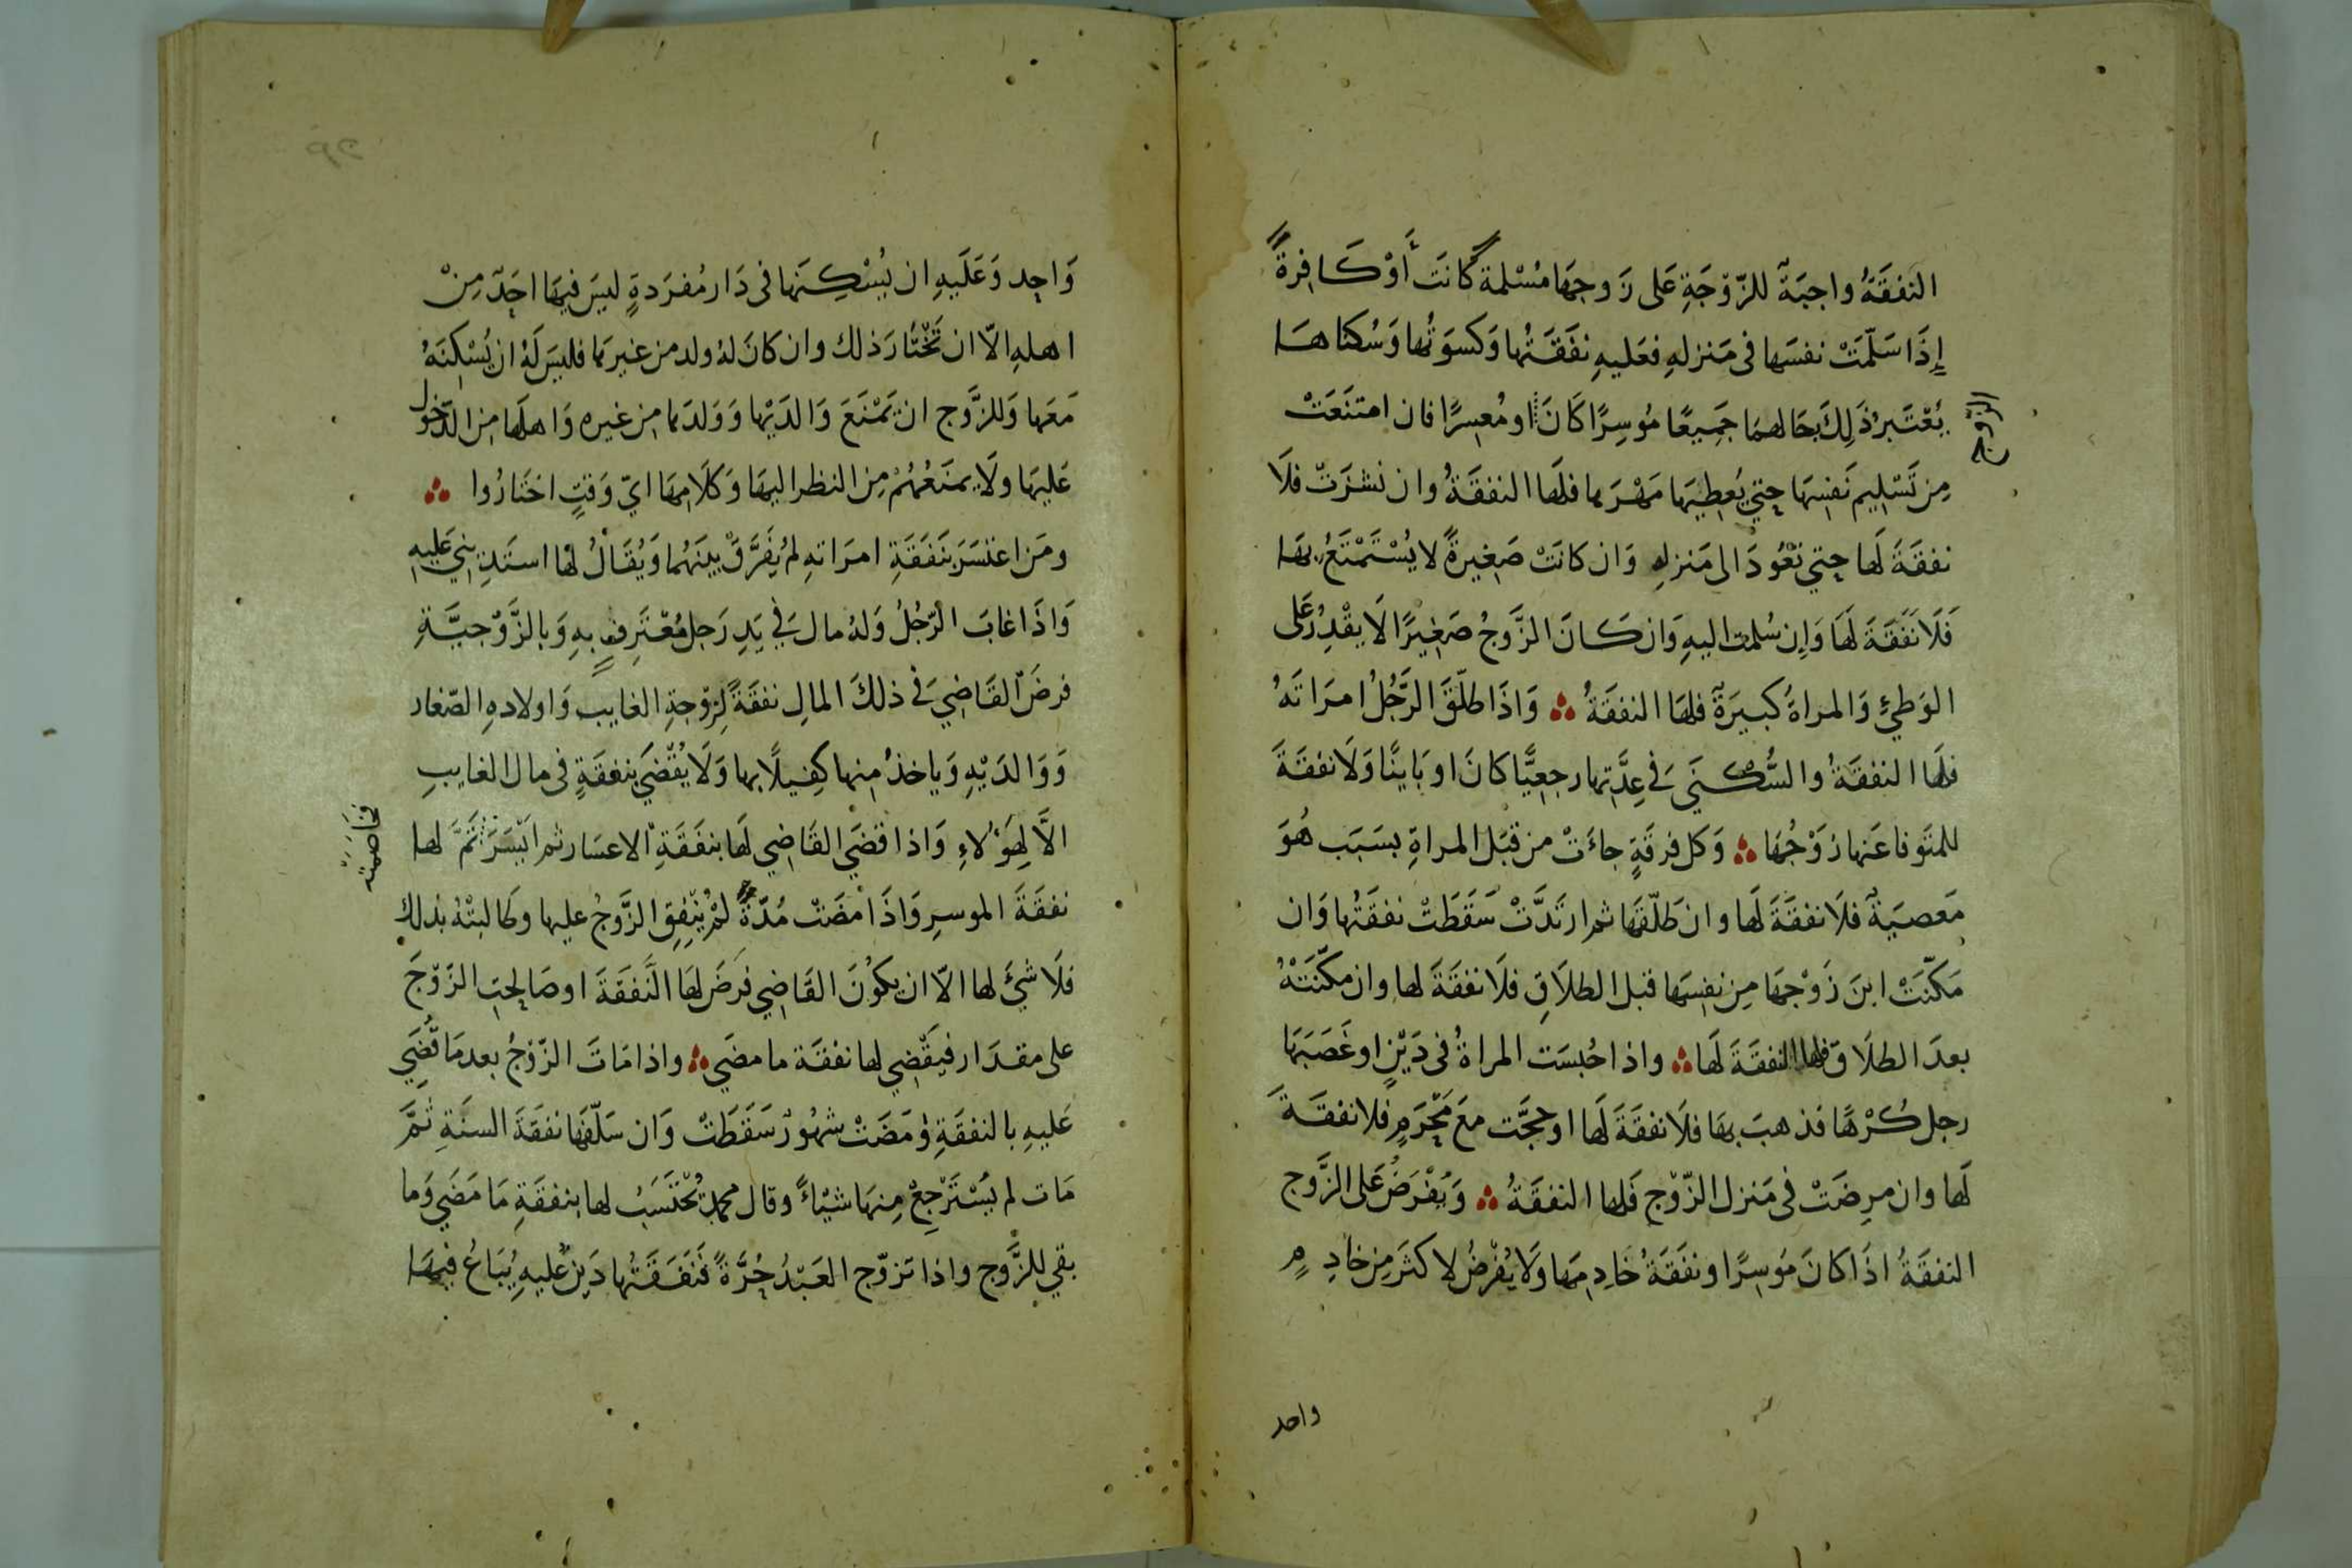 النفَقَةُ واجبَةٌ للزّوْجَةِ عَلى زَوجِهَا مُسْلمةً كانَت أَوْ كَافِرةً
إِذَا سَلّمَتْ نفسَها فى مَنزلهِ فعَليهِ نفَقَتُها وَكسوَتُها وَسُكناهَا
يُعْتَبرُ ذَلِكَ بحَالهمَا جَمِيعًا مُوسِرًا كَانَ او مُعسِرًا فان امتنَعَتْ
الزوج
مِن تَسْلِيم نَفسِهَا حتي يُعطِيَها مَهْرَها فلَها النفقَةُ وان نشزَتْ فلَا
نفقَةَ لَها حتي تعُودَ الى مَنزلهِ وَان كانَتْ صَغِيرةً لا يُسْتَمْتَعُ بهَا
فَلَا نَفَقَةَ لهَا وَاِن سُلمت اليهِ وَان كَانَ الزَّوجُ صَغِيرًا لَا يقْدِرُ عَلى
الوَطيِ وَالمراةُ كبيرَةٌ فلهَا النفقَةُ ؞ وَاذَا طلّقَ الرَّجُلُ امرَاتَهُ
فلَها النفقَةُ والسُّكنَي فى عِدَّتِها رجعِيًّا كانَ او بَاينًا وَلَا نفقَةَ
للمتَوفا عَنها زَوْجُهَا ؞ وَكل فرقَةٍ جاءَتْ من قبَل المراةِ بسَبَب هُوَ
مَعصيَةٌ فلَا نفقَةَ لَها وان طَلّقَها ثم ارتَدَّتْ سَقَطَتْ نفقَتُها وَان
مَكّنَتْ ابنَ زَوْجهَا مِن نفسِهَا قبل الطلَاقِ فلَا نفقَةَ لها وان مكّنَتْهُ
بعدَ الطلَاق فلها النفقَةَ لَها ؞ واذا حُبسَت المراةُ فى دَيْنٍ او غَصَبَها
رجل كُرْهًا فذهبَ بهَا فلَا نفقَةَ لَها او حجَّت معَ مَحْرَمٍ فلا نفقَةَ
لَها وان مرِضَتْ فى مَنزل الزّوْج فَلها النفقَةُ ؞ وَيُفْرَضُ عَلى الزَّوج
النفقَةُ اذَا كانَ مُوسِرًا ونفَقَةُ خَادِمِها وَلَا يُفْرضُ لاكثَرَ مِن خادِمٍ
واحد
وَاحِد وَعَلَيهِ ان يُسْكِنَها فى دَار مُفرَدةٍ ليسَ فيهَا احَدٌ مِنْ
اهلهِ الّا ان تَخْتَارَ ذلك وان كانَ لهُ ولد من غيرها فليسَ لَهُ ان يُسْكِنَهُ
مَعَها وَللزَّوج ان يَمْنَعَ وَالدَيْها وَوَلدَها مِن غيره وَاهلَها مِن الدّخول
عَليهَا ولَا يمنَعُهُمْ مِن النظر اليهَا وَكلَامِهَا ايّ وَقتٍ اختَارُوا ؞
ومَن اعْسَرَ بنَفَقَةِ امرَاتهِ لم يُفَرَّقْ بينَهُما وَيُقَالُ لها استَدِيني عَليهِ
وَاذَا غابَ الرّجُلُ وَلهُ مال فى يَدِ رَجل مُعْتَرِفٍ بهِ وَبالزَّوْجيَّةِ
فرضَ القَاضِي فى ذلكَ المالِ نفقَةً لِزوْجةِ الغايب وَاولادهِ الصّغار
وَوَالدَيْهِ وَياخذُ منها كَفِيلًا بها وَلَا يُقْضَي بنفقَةٍ فى مال الغايبِ
الَّا لِهَوُلاءِ وَاذا قضَي القَاضِي لَها بنفَقَةِ الاعسَار ثم ايْسَرَ تَمَّمَ لها
فخاصمته
نفقَةَ الموسرِ وَاذَا مَضَتْ مُدّةٌ لمْ يُنفِق الزَّوجُ عليها وطالبتْهُ بذلك
فلَا شيَ لها الّا ان يكوُنَ القَاضِي فرَضَ لهَا النَّفقَةَ او صَالحَت الزّوْجَ
على مقدَار فيَقْضِي لها نفقَة ما مضَي ؞ واذا مَاتَ الزّوجُ بعد مَا قُضِيَ
عَليهِ بالنفقَةِ وَمَضَتْ شهُورٌ سَقَطَتْ وَان سَلّفَها نفَقَةَ السنَةِ ثمَّ
مَات لم يُسْتَرْجِعْ مِنهَا شيْاءً وقال محمد تُحْتَسَبُ لها بنفقَةِ مَا مَضَي وَما
بقي للزَّوج واذا تزوّج العَبْدُ حُرَّةً فَنَفَقَتُها دَينٌ عَليهِ يُبَاعُ فيهَا